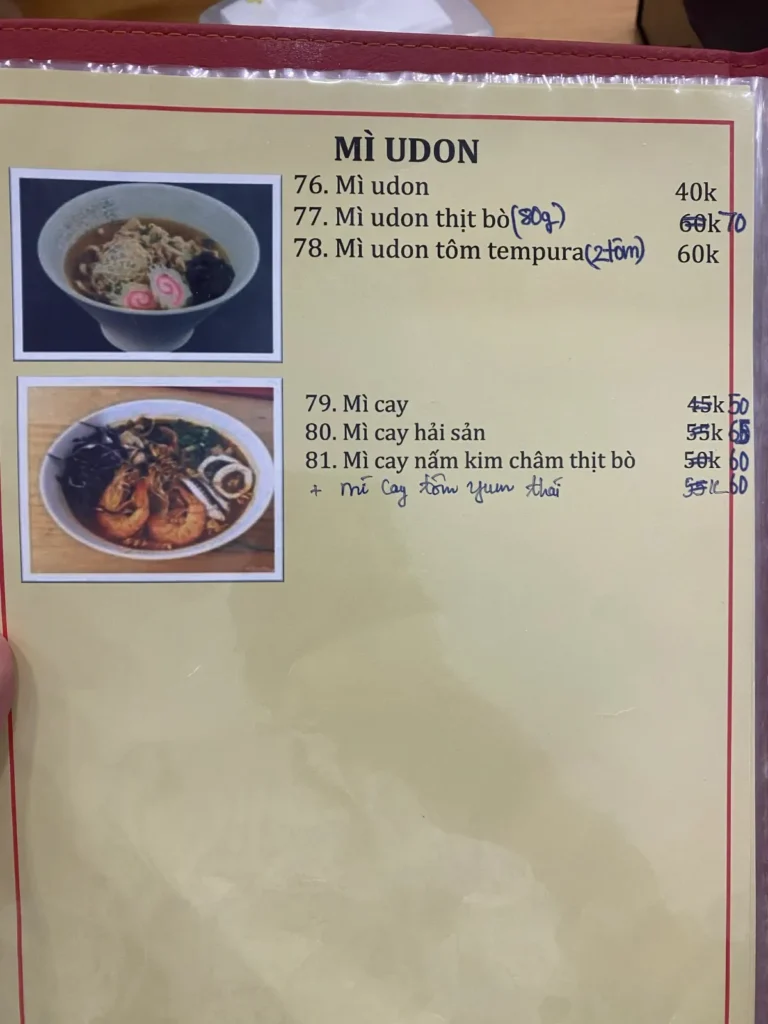 MÌ UDON
76. Mì udon 40k
77. Mì udon thịt bò (80g) 60k 70
78. Mì udon tôm tempura (2 tôm) 60k
79. Mì cay 45k 50
80. Mì cay hải sản 55k 65
81. Mì cay nấm kim châm thịt bò 50k 60
+ mì cay tôm yum thái 55k 60